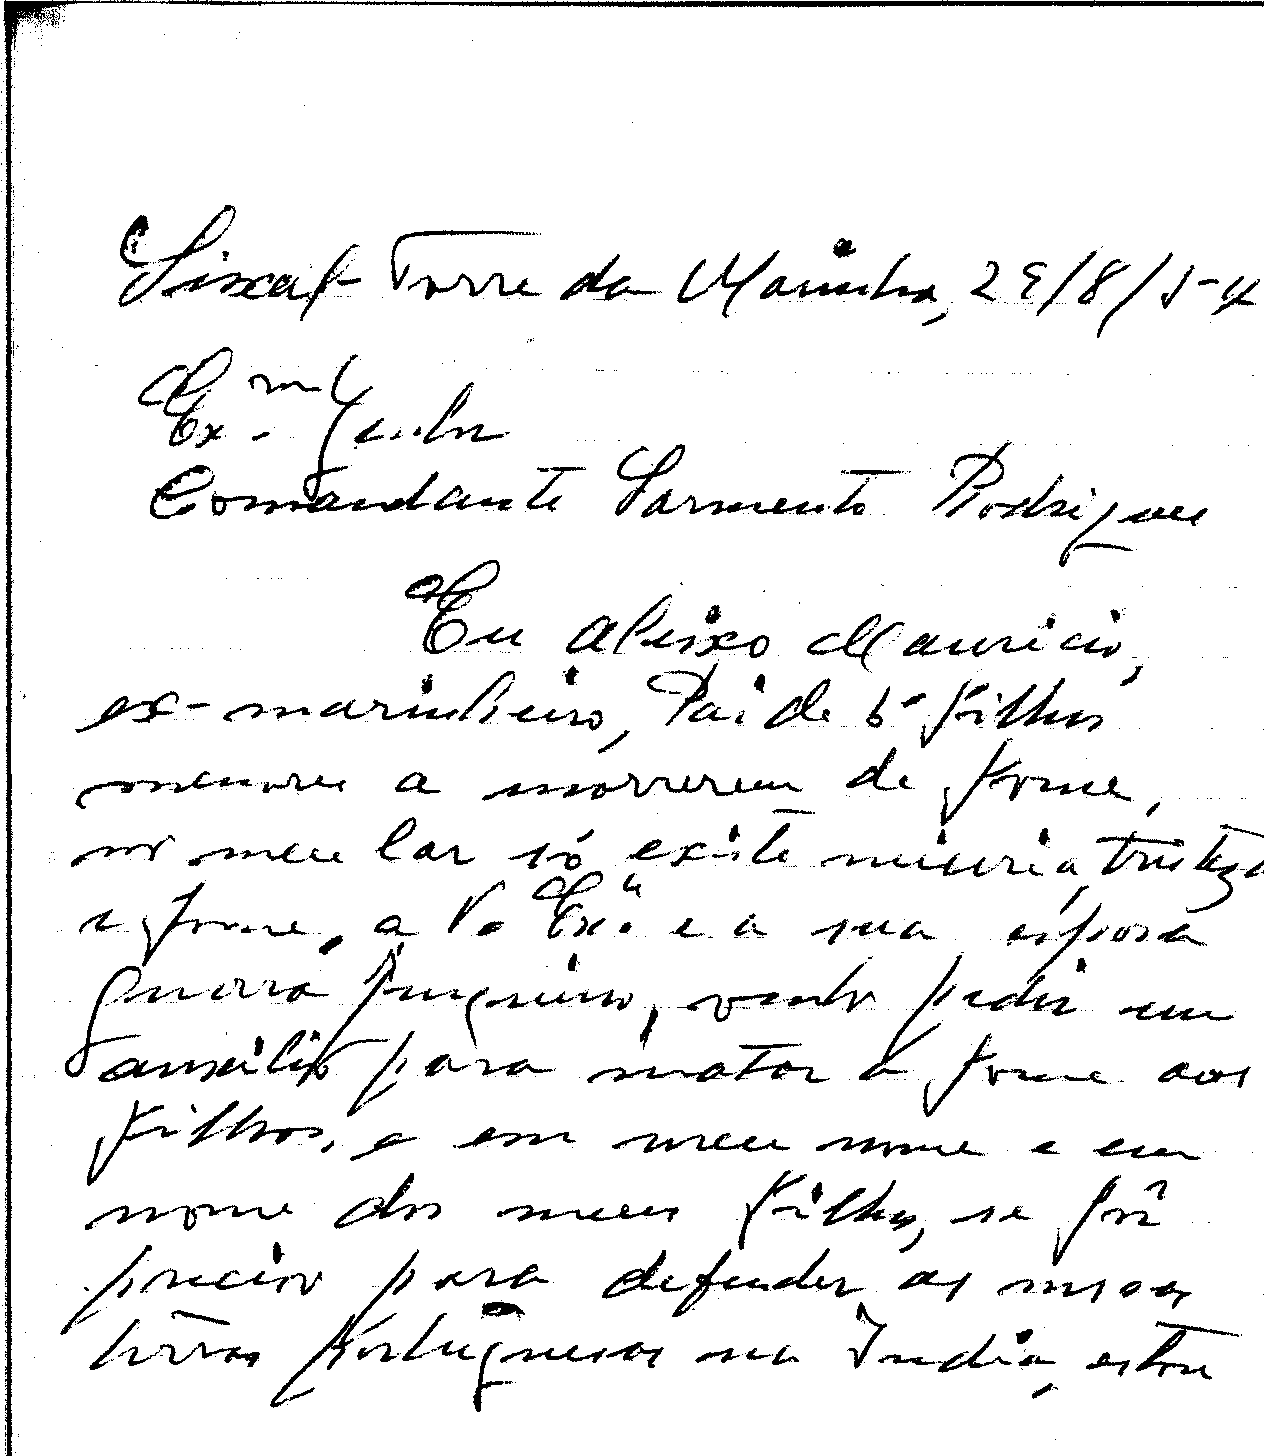 Torre da Marinha, 29/8/54
Exmº Senhor
Comandante Sarmento Rodrigues
Eu Aleixo Mauricio,
ex-marinheiro, Pai de 6 filhos
menores a morrerem de fome,
no meu lar só existe miseria, tristeza
e fome, a V. Exª e a sua esposa
venho pedir um
auxilio para matar a fome aos
filhos, e em meu nome e em
nome dos meus filhos, se fôr
preciso para defender as nossas
terras Portuguesas na India, estou